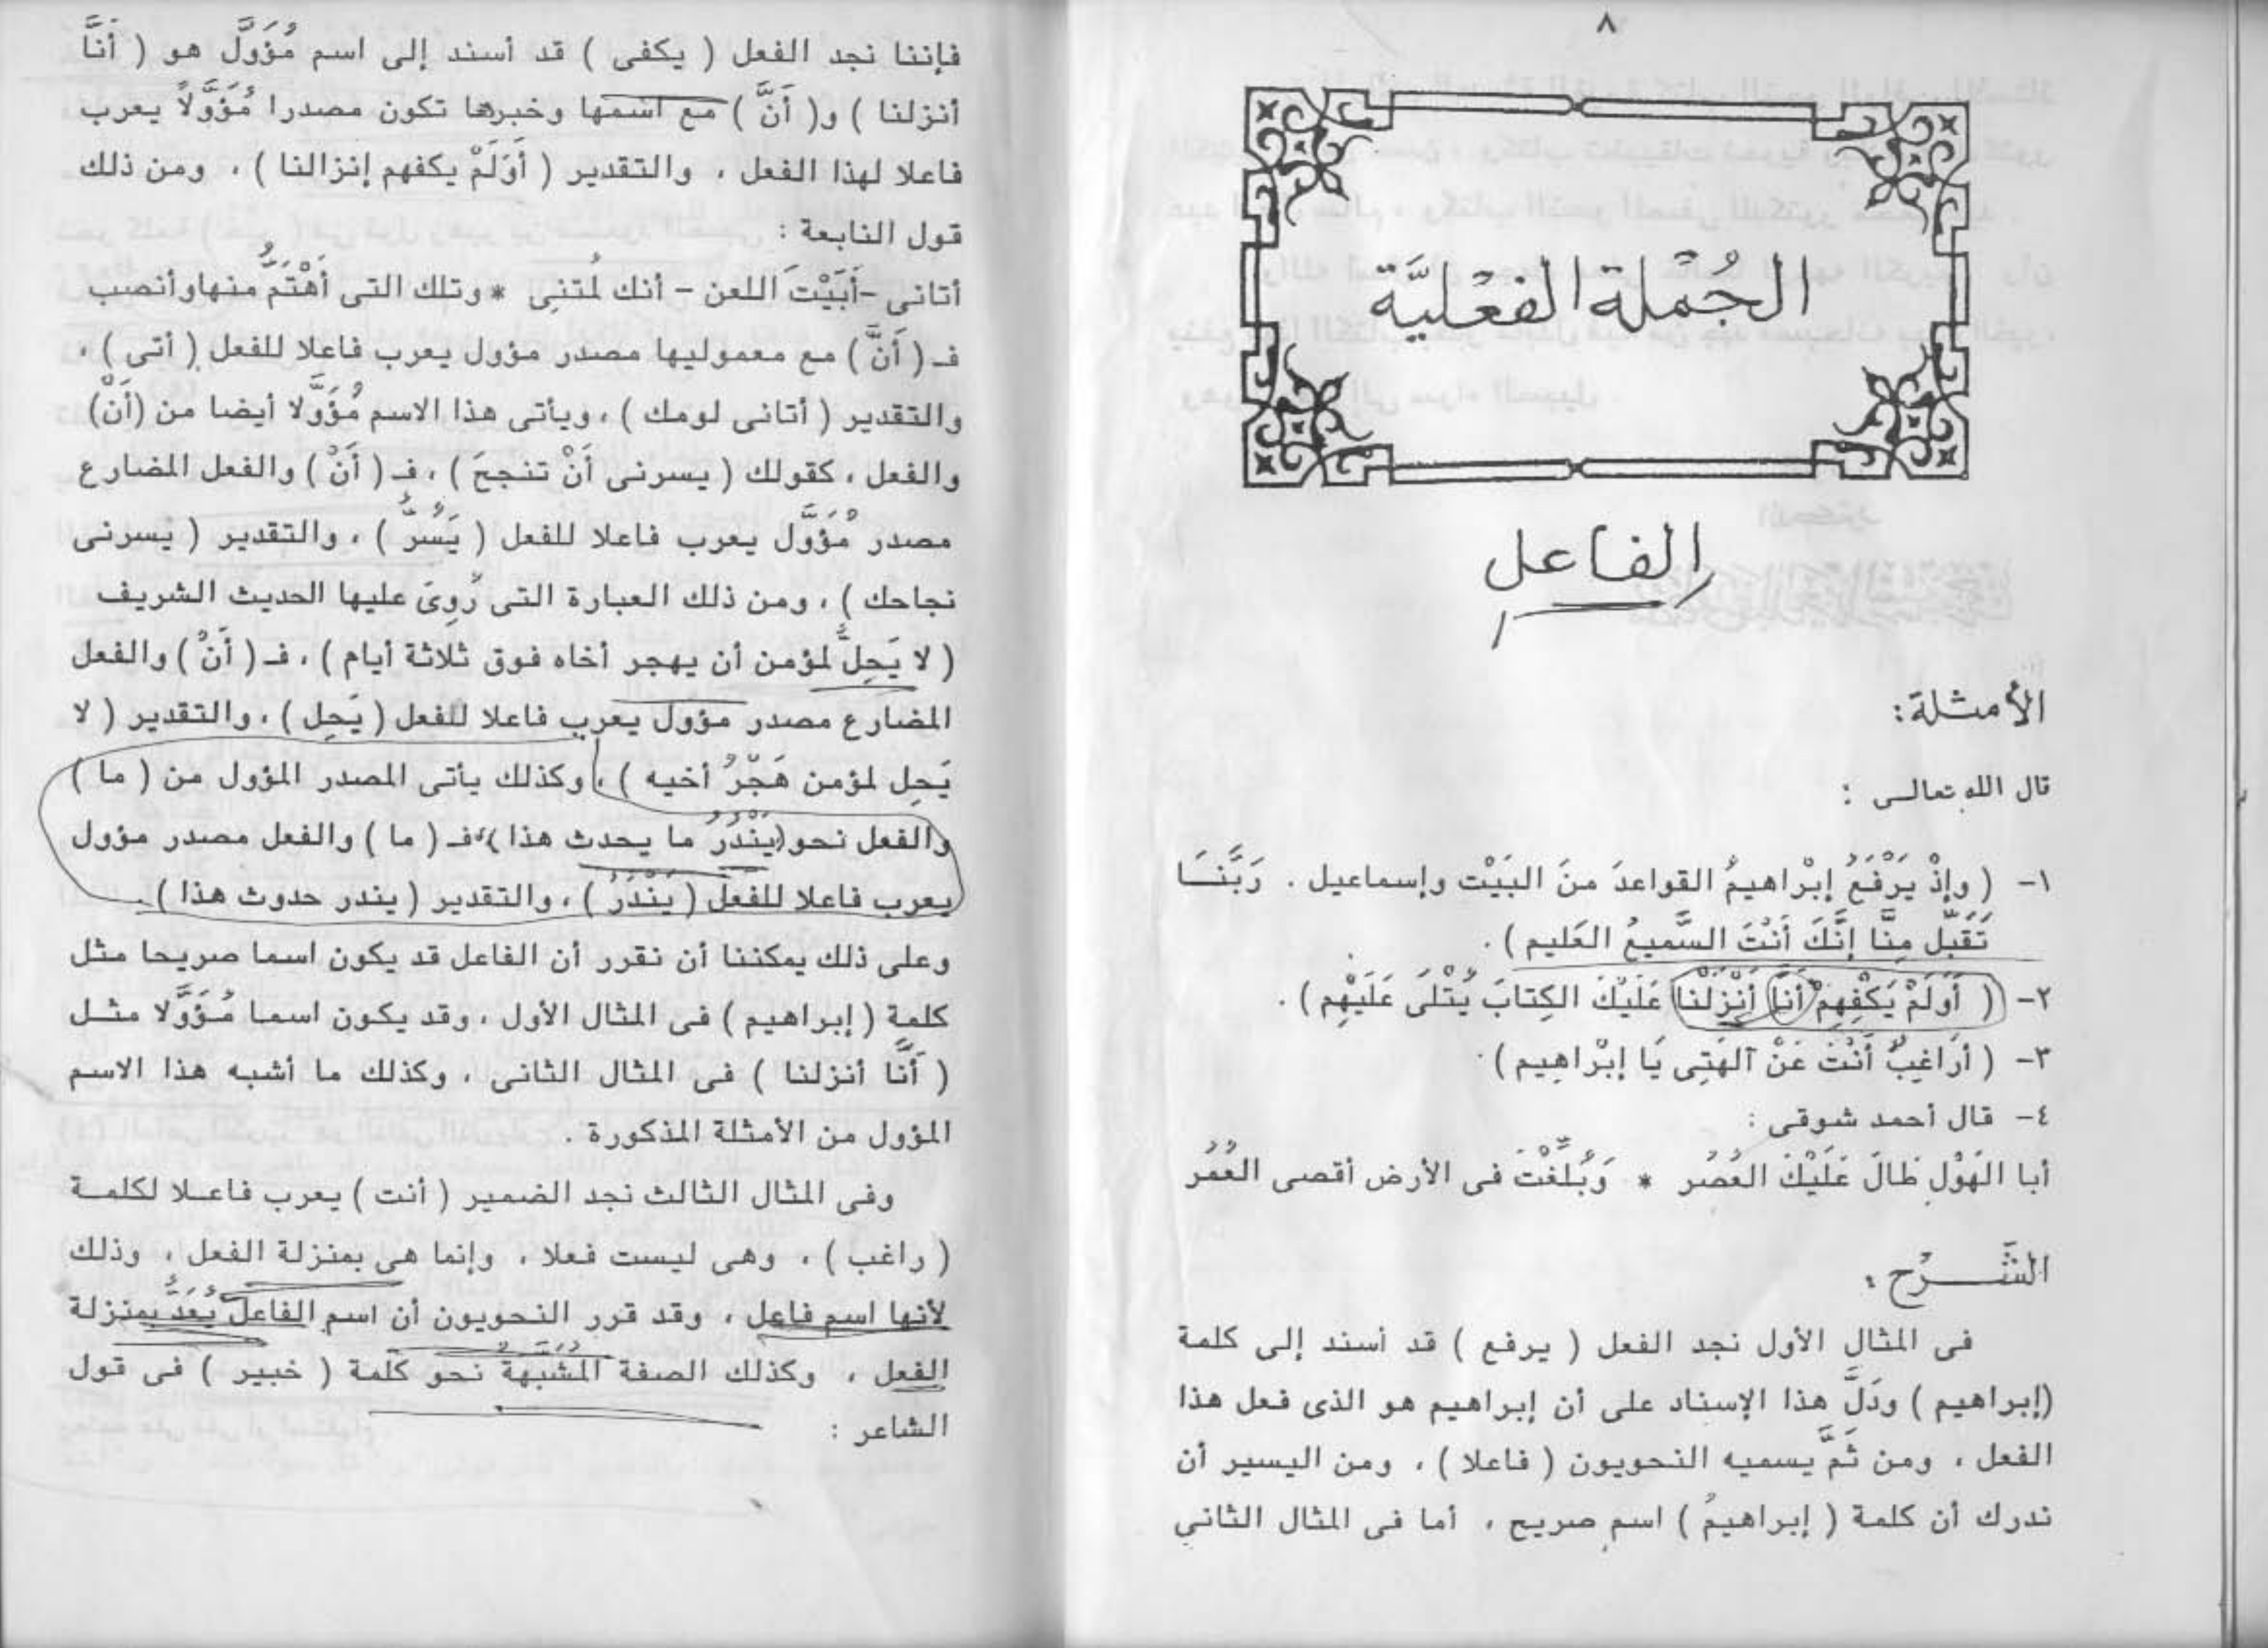 ٨
الجُمْلة الفعْليَّة
الفاعل
الأمثلة:
قال الله تعالى :
١- ( وإذْ يَرْفَعُ إبْراهيمُ القواعدَ منَ البَيْت وإسماعيل . رَبَّنَـا
تَقَبّل مِنَّا إنَّكَ أَنْتَ السَّميعُ العَليم ) .
٢- ( أَوَلَمْ يَكْفِهِمْ أَنَّا أَنْزَلْنا عَلَيْكَ الكِتابَ يُتْلَى عَلَيْهِم ) .
٣- ( أَرَاغِبٌ أَنْتَ عَنْ آلهَتِى يَا إبْراهِيم ) .
٤- قال أحمد شوقى :
أبا الهَوْل طَالَ عَلَيْكَ العُصُر * وَبُلِّغْتَ فى الأرض أقصى العُمُر
الشَّـــرْح :
فى المثال الأول نجد الفعل ( يرفع ) قد أسند إلى كلمة
(إبراهيم ) ودَلَّ هذا الإسناد على أن إبراهيم هو الذى فعل هذا
الفعل ، ومن ثَمَّ يسميه النحويون ( فاعلا ) ، ومن اليسير أن
ندرك أن كلمة ( إبراهيمُ ) اسم صريح ، أما فى المثال الثانى
فإننا نجد الفعل ( يكفى ) قد أسند إلى اسم مُؤَوَّل هو ( أَنَّا
أنزلنا ) و( أَنَّ ) مع اسمها وخبرها تكون مصدرا مُؤَوَّلاً يعرب
فاعلا لهذا الفعل ، والتقدير ( أَوَلَمْ يكفهم إنزالنا ) ، ومن ذلك
قول النابعة :
أتانى -أَبَيْتَ اللعن - أنك لُمتنى * وتلك التى أَهْتَمُّ منها وأنصب
فـ ( أَنَّ ) مع معموليها مصدر مؤول يعرب فاعلا للفعل ( أتى ) ،
والتقدير ( أتانى لومك ) ، ويأتى هذا الاسم مُؤَوَّلا أيضا من (أَنْ)
والفعل ، كقولك ( يسرنى أَنْ تنجحَ ) ، فـ ( أَنْ ) والفعل المضارع
مصدر مُؤَوَّل يعرب فاعلا للفعل ( يَسُرُّ ) ، والتقدير ( يسرنى
نجاحك ) ، ومن ذلك العبارة التى رُوِىَ عليها الحديث الشريف
( لا يَحِلُّ لمؤمن أن يهجر أخاه فوق ثلاثة أيام ) ، فـ ( أَنْ ) والفعل
المضارع مصدر مؤول يعرب فاعلا للفعل ( يَحِل ) ، والتقدير ( لا
يَحِل لمؤمن هَجْرُ أخيه ) ، وكذلك يأتى المصدر المؤول من ( ما )
والفعل نحو (يَنْدُرُ ما يحدث هذا ) فـ ( ما ) والفعل مصدر مؤول
يعرب فاعلا للفعل ( يَنْدُرُ ) ، والتقدير ( يندر حدوث هذا ) .
وعلى ذلك يمكننا أن نقرر أن الفاعل قد يكون اسما صريحا مثل
كلمة ( إبراهيم ) فى المثال الأول ، وقد يكون اسما مُؤَوَّلا مثـل
( أَنَّا أنزلنا ) فى المثال الثانى ، وكذلك ما أشبه هذا الاسم
المؤول من الأمثلة المذكورة .
وفى المثال الثالث نجد الضمير ( أنت ) يعرب فاعـلا لكلمـة
( راغب ) ، وهى ليست فعلا ، وإنما هى بمنزلة الفعل ، وذلك
لأنها اسم فاعل ، وقد قرر النحويون أن اسم الفاعل يُعَدُّ بمنزلة
الفعل ، وكذلك الصفة المُشَبَّهةُ نحو كلمة ( خبير ) فى قول
الشاعر :